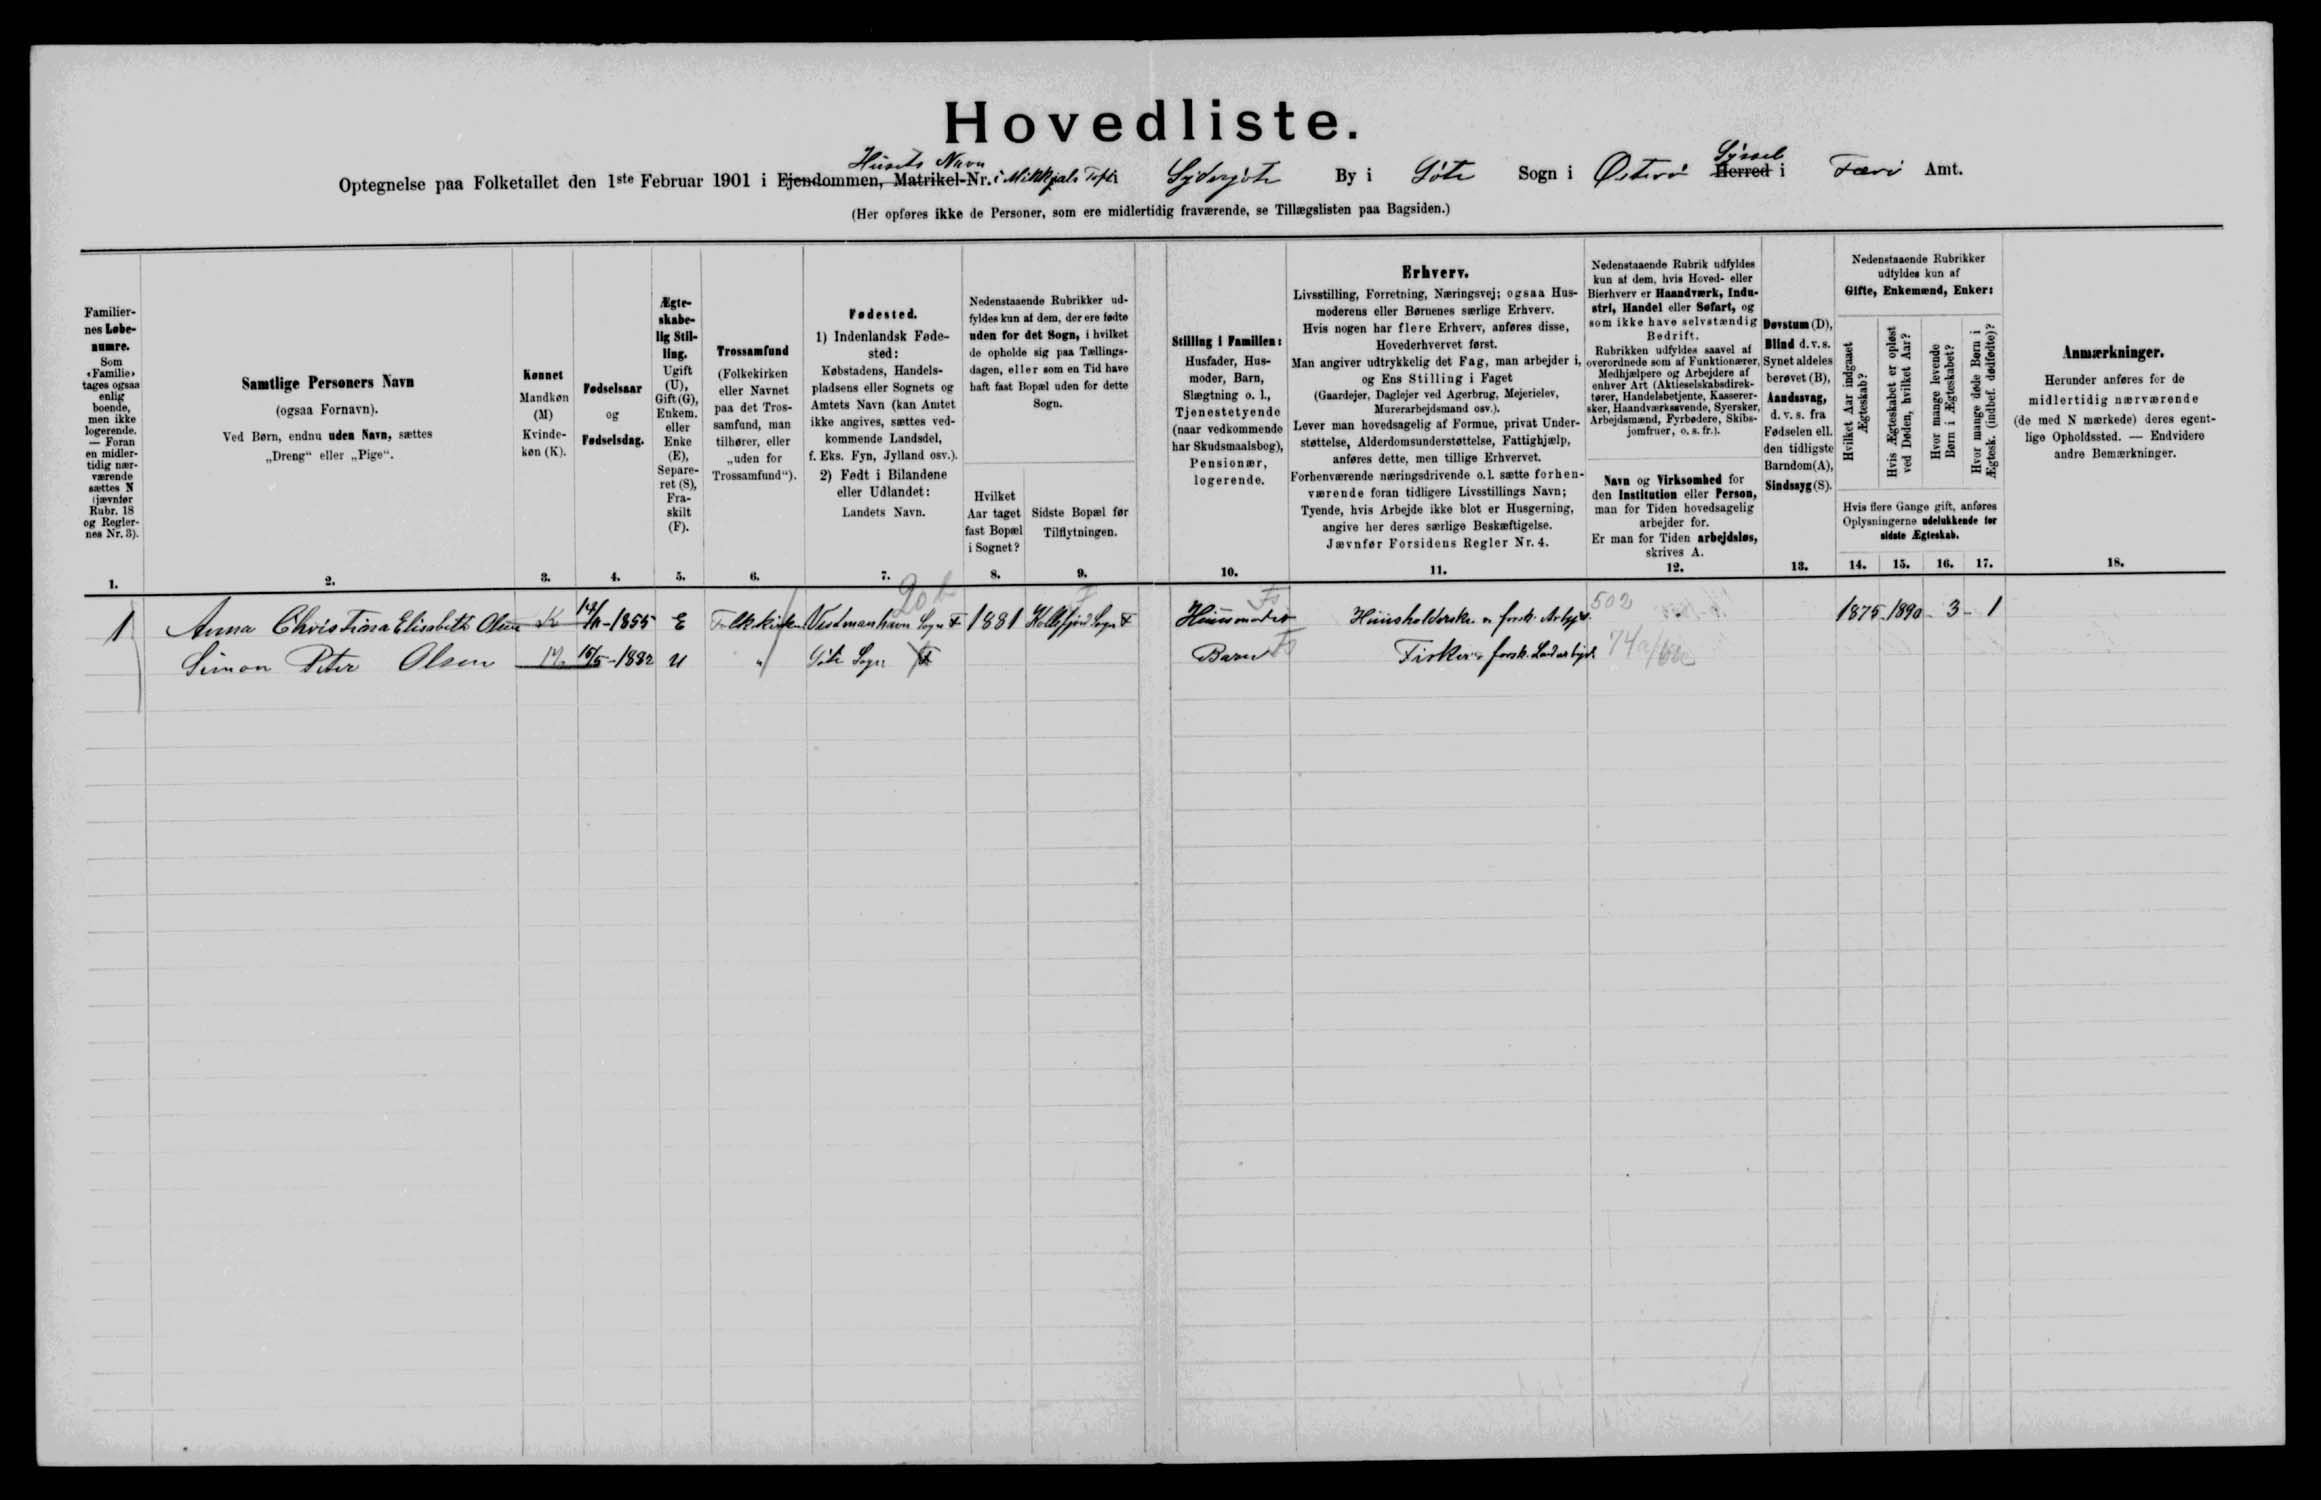 Hovedliste.
Husets Navn
Syssel
Optegnelse paa Folketallet den 1ste Februar 1901 i Ejendommen, Matrikel-Nr. i Mikkjals Tofti Sydrugöte By i Göte Sogn i Österö Herred i Færö Amt.
(Her opføres ikke de Personer, som ere midlertidig fraværende, se Tillægslisten paa Bagsiden.)
Familier-
nes Løbe-
numre.
Som
«Familie»
tages ogsaa
enlig
boende,
men ikke
logerende.
— Foran
en midler-
tidig nær-
værende
sættes N
(jævnfør
Rubr. 18
og Regler-
nes Nr. 3).
1.
Samtlige Personers Navn
(ogsaa Fornavn).
Ved Børn, endnu uden Navn, sættes
„Dreng“ eller „Pige“.
2.
Kønnet
Mandkøn
(M)
Kvinde-
køn (K).
3.
Fødselsaar
og
Fødselsdag.
4.
Ægte-
skabe-
lig Stil-
ling.
Ugift
(U),
Gift (G),
Enkem.
eller
Enke
(E),
Separe-
ret (S),
Fra-
skilt
(F).
5.
Trossamfund
(Folkekirken
eller Navnet
paa det Tros-
samfund, man
tilhører, eller
„uden for
Trossamfund“).
6.
Fødested.
1) Indenlandsk Føde-
sted:
Købstadens, Handels-
pladsens eller Sognets og
Amtets Navn (kan Amtet
ikke angives, sættes ved-
kommende Landsdel,
f. Eks. Fyn, Jylland osv.).
2) Født i Bilandene
eller Udlandet:
Landets Navn.
7.
Nedenstaaende Rubrikker ud-
fyldes kun af dem, der ere fødte
uden for det Sogn, i hvilket
de opholde sig paa Tællings-
dagen, eller som en Tid have
haft fast Bopæl uden for dette
Sogn.
Hvilket
Aar taget
fast Bopæl
i Sognet?
8.
Sidste Bopæl før
Tilflytningen.
9.
Stilling i Familien:
Husfader, Hus-
moder, Barn,
Slægtning o. l.,
Tjenestetyende
(naar vedkommende
har Skudsmaalsbog),
Pensionær,
logerende.
10.
Erhverv.
Livsstilling, Forretning, Næringsvej; ogsaa Hus-
moderens eller Børnenes særlige Erhverv.
Hvis nogen har flere Erhverv, anføres disse,
Hovederhvervet først.
Man angiver udtrykkelig det Fag, man arbejder i,
og Ens Stilling i Faget
(Gaardejer, Daglejer ved Agerbrug, Mejerielev,
Murerarbejdsmand osv.).
Lever man hovedsagelig af Formue, privat Under-
støttelse, Alderdomsunderstøttelse, Fattighjælp,
anføres dette, men tillige Erhvervet.
Forhenværende næringsdrivende o. l. sætte forhen-
værende foran tidligere Livsstillings Navn;
Tyende, hvis Arbejde ikke blot er Husgerning,
angive her deres særlige Beskæftigelse.
Jævnfør Forsidens Regler Nr. 4.
11.
Nedenstaaende Rubrik udfyldes
kun af dem, hvis Hoved- eller
Bierhverv er Haandværk, Indu-
stri, Handel eller Søfart, og
som ikke have selvstændig
Bedrift.
Rubrikken udfyldes saavel af
overordnede som af Funktionærer,
Medhjælpere og Arbejdere af
enhver Art (Aktieselskabsdirek-
tører, Handelsbetjente, Kasserer-
sker, Haandværkssvende, Syersker,
Arbejdsmænd, Fyrbødere, Skibs-
jomfruer, o. s. fr.).
Navn og Virksomhed for
den Institution eller Person,
man for Tiden hovedsagelig
arbejder for.
Er man for Tiden arbejdsløs,
skrives A.
12.
Døvstum (D),
Blind d. v. s.
Synet aldeles
berøvet (B),
Aandssvag,
d. v. s. fra
Fødselen ell.
den tidligste
Barndom (A),
Sindssyg (S).
13.
Nedenstaaende Rubrikker
udfyldes kun af
Gifte, Enkemænd, Enker:
Hvilket Aar indgaaet
Ægteskab?
Hvis Ægteskabet er opløst
ved Døden, hvilket Aar?
Hvor mange levende
Børn i Ægteskabet?
Hvor mange døde Børn i
Ægtesk. (indbef. dødfødte)?
Hvis flere Gange gift, anføres
Oplysningerne udelukkende for
sidste Ægteskab.
14. 15. 16. 17.
Anmærkninger.
Herunder anføres for de
midlertidig nærværende
(de med N mærkede) deres egent-
lige Opholdssted. — Endvidere
andre Bemærkninger.
18.
1 Anna Christina Elisabeth Olsen K 14/11-1855 E Folkekirken Vestmanhavn Sogn F 1881 Kollefjord Sogn F Huusmoder Huusholderske o forsk. Arbejd. 502 1875 1890 3 1
Simon Peter Olsen M 15/5-1882 U " Göte Sogn F Barn Fisker o forsk. Landarbejd.